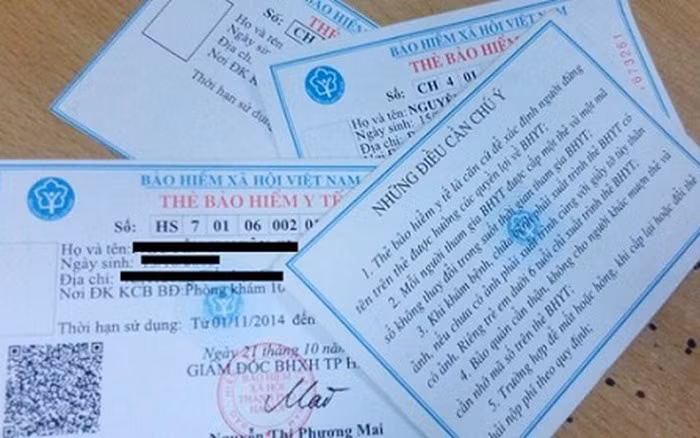 Số:
CH
THẺ
Họ và tên
Ngày sinh
Địa ch.
Nơi ĐK K
Thời hạn sử dụn
BẢO HIỂM XÃ HỘI VIỆT NAM
THẺ BẢO HIỂM
Số: CH 4 01
Họ và tên: NGUYỄ
Ngày sinh: 15
Địa chỉ:
673261
BẢO HIỂM XÃ HỘI VIỆT NAM
THẺ BẢO HIỂM Y TẾ
Số: HS 7 01 06 002
Họ và tên:
Ngày sinh:
Địa chỉ:
Nơi ĐK KCB BĐ: Phòng khám
Thời hạn sử dụng: Từ 01/11/2014 đến
Ngày 21 tháng 10 năm
GIÁM ĐỐC BHXH TP H
BẢO HIỂM
XÃ HỘI
Nguyễn Thị Phương Mai
NHỮNG ĐIỀU CẦN CHÚ Ý
1. Thẻ bảo hiểm y tế là căn cứ để xác định người đứng
tên trên thẻ được hưởng các quyền lợi về BHYT;
2. Mỗi người tham gia BHYT được cấp một thẻ và một mã
số không thay đổi trong suốt thời gian tham gia BHYT;
3. Khi khám bệnh, chữa bệnh phải xuất trình thẻ BHYT có
ảnh, nếu chưa có ảnh phải xuất trình cùng với giấy tờ tùy thân
có ảnh. Riêng trẻ em dưới 6 tuổi chỉ xuất trình thẻ BHYT;
4. Bảo quản cẩn thận, không cho người khác mượn thẻ và
cần nhớ mã số trên thẻ BHYT;
5. Trường hợp để mất hoặc hỏng, khi cấp lại hoặc đổi
phải nộp phí theo quy định;